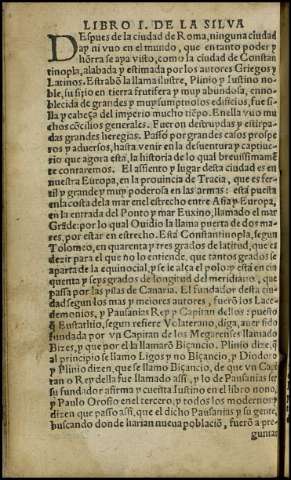 LIBRO I. DE LA SILVA
DEspues de la ciudad de Roma, ninguna ciudad
ay ni vuo en el mundo, que en tanto poder y
hõrra se aya visto, como la ciudad de Constan
tinopla, alabada y estimada por los autores Griegos y
Latinos. Estrabõ la llama ilustre, Plinio y Iustino no
ble, su sitio en tierra frutifera y muy abũdosa, enno-
blecida de grandes y muy sumptuosos edificios, fue si-
lla y cabeça del imperio mucho tiẽpo. En ella vuo mu
chos cõcilios generales. Fueron destruydas y estirpa-
das grandes heregias. Passo por grandes casos prospe
ros y aduersos, hasta venir en la desuentura y captiue-
rio que agora està, la historia de lo qual breuissimamẽ
te contaremos. El assiento y lugar desta ciudad es en
nuestra Europa, en la prouincia de Tracia, que es fer-
til y grande y muy poderosa en las armas: està puesta
en la costa dela mar en el estrecho entre Asia y Europa,
en la entrada del Ponto y mar Euxino, llamado el mar
Grãde: por lo qual Ouidio la llama puerta de dos ma-
res, por estar en estrecho. Està Constantinopla, segun
Tolomeo, en quarenta y tres grados de latitud, que es
dezir para el que no lo entiende, que tantos grados se
aparta de la equinocial, y se le alça el polo: y està en cin
quenta y seys grados de longitud del meridiano, que
passa por las yslas de Canaria. El fundador desta ciu
dad segun los mas y mejores autores, fuerõ los Lace-
demonios, y Pausanias Rey y Capitan dellos: puesto
q̃ Eustathio, segun refiere Volaterano, diga, auer sido
fundada por vn Capitan de los Megarenses llamado
Bizes, y que por el la llamarõ Biçancio. Plinio dize, q̃
al principio se llamo Ligos y no Biçancio, y Diodoro
y Plinio dizen, que se llamo Biçancio, de que vn Capi
tan o Rey della fue llamado assi, y lo de Pausanias ser
su fundador afirma y cuenta Iustino en el libro nono,
y Paulo Orosio en el tercero, y todos los modernos y
dizen que passo assi, que el dicho Pausanias y su gente,
buscando donde harian nueua poblaciõ, fuerõ a pre-
guntar